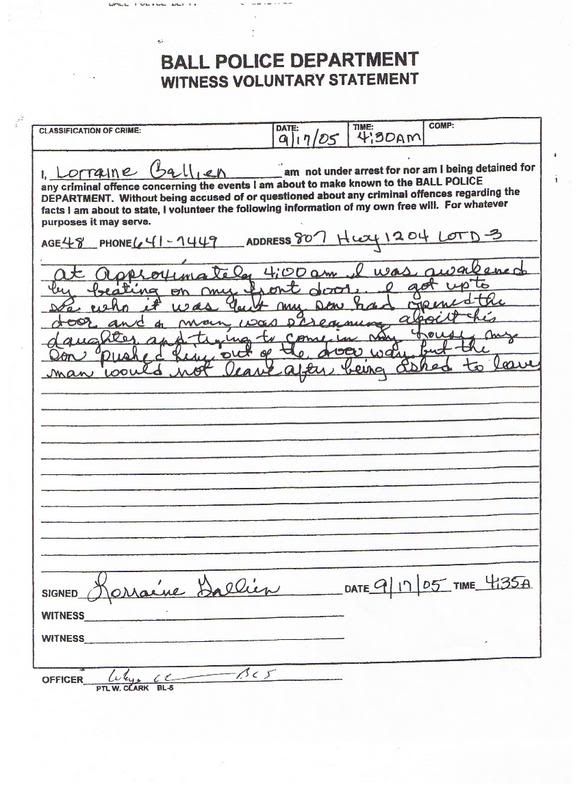 BALL POLICE DEPARTMENT
WITNESS VOLUNTARY STATEMENT
CLASSIFICATION OF CRIME: DATE: 9/17/05 TIME: 4:30AM COMP:
I, Lorraine Gallien am not under arrest for nor am I being detained for
any criminal offence concerning the events I am about to make known to the BALL POLICE
DEPARTMENT. Without being accused of or questioned about any criminal offences regarding the
facts I am about to state, I volunteer the following information of my own free will. For whatever
purposes it may serve.
AGE 48 PHONE 641-7449 ADDRESS 807 Hwy 1204 LOT D-3
at approximately 4:00 am I was awakened
by beating on my front door. I got up to
see who it was but my son had opened the
door and a man was screaming about his
daughter and trying to come in my house my
son pushed him out of the door way but the
man would not leave after being asked to leave
SIGNED Lorraine Gallien DATE 9/17/05 TIME 4:35A
WITNESS
WITNESS
OFFICER
PTL W. CLARK BL-5